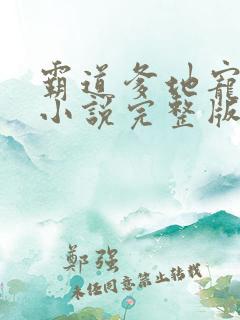 霸道爹地寵
小說完整版
鄭強
未經同意禁止轉載